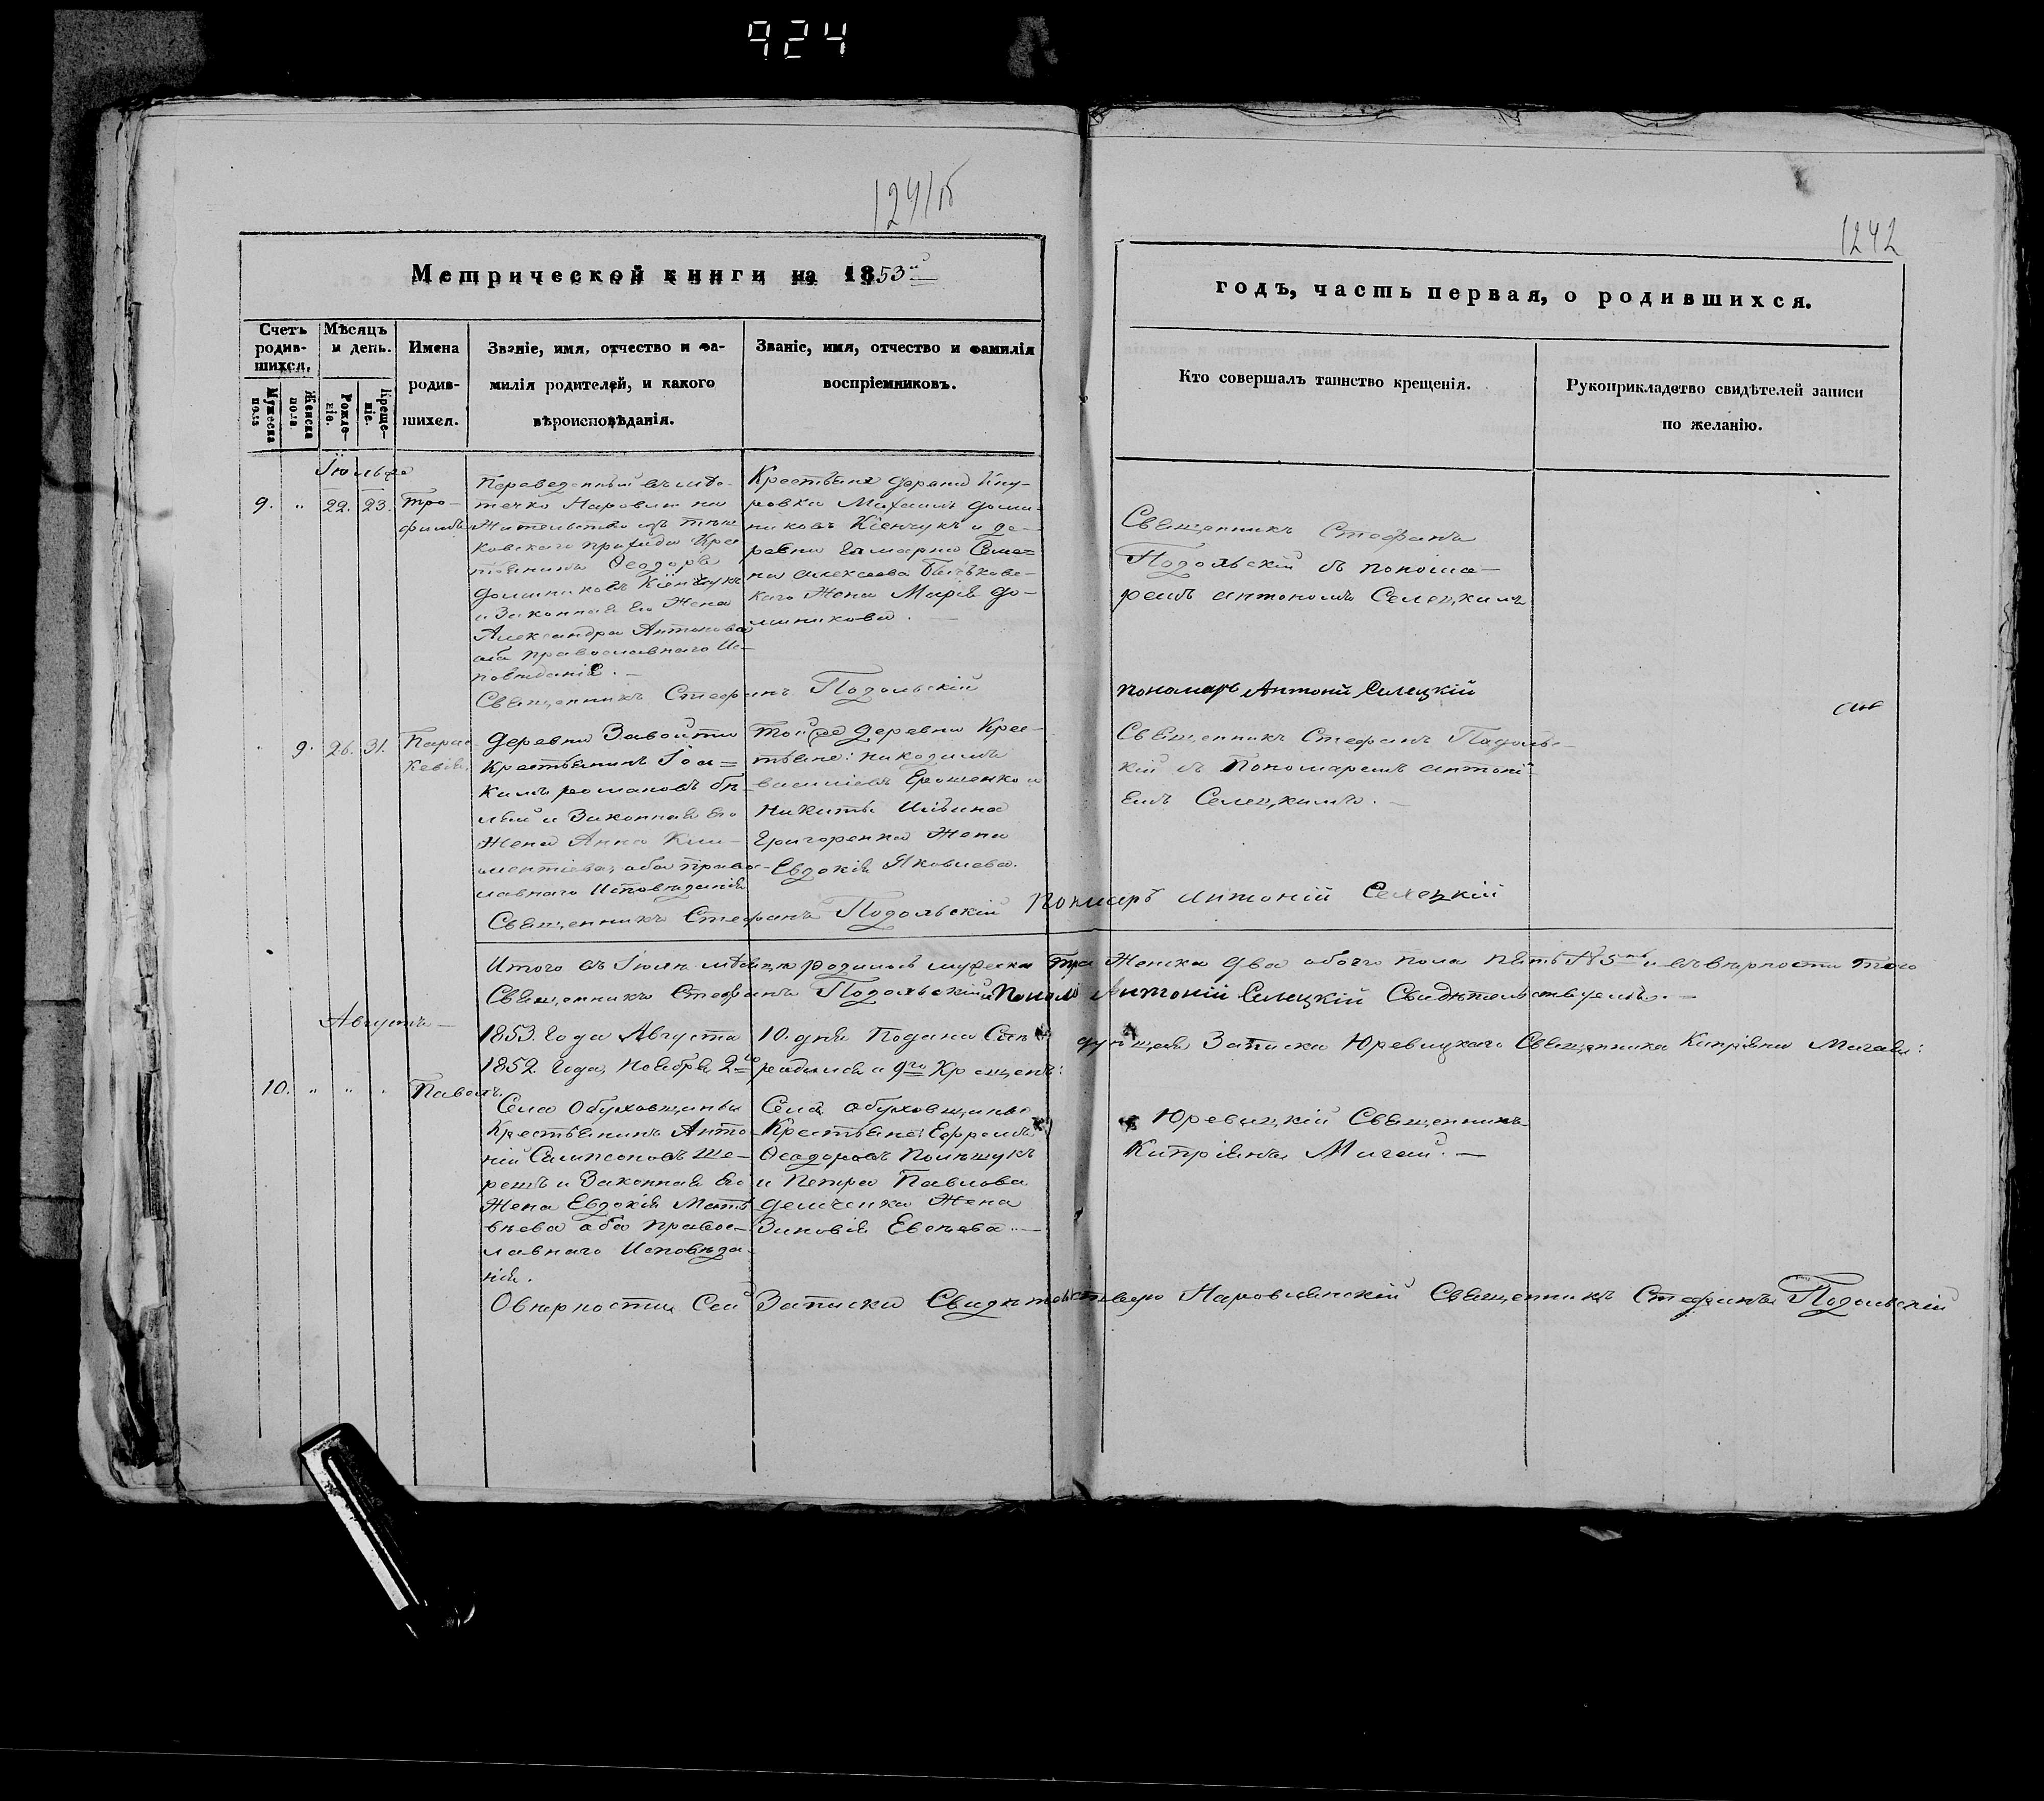 924
1241об
1242
Метрической книги на 1853й
годъ, часть первая, о родившихся.
Счетъ родив-шихся.
Мѣсяцъ и день.
Мужеска пола
Женска пола
Рожде-ніе.
Креще-ніе.
Имена
родив-
шихся.
Званіе, имя, отчество и фа-
милія родителей, и какого
вѣроисповѣданія.
Званіе, имя, отчество и фамилія
воспріемниковъ.
Кто совершалъ таинство крещенія.
Рукоприкладство свидѣтелей записи
по желанію.
Іюль
9. " 22. 23. Тро-
фимъ
Переведенный въ мѣс-
течко Наровлю на
Жительство изъ
ковскаго прихода Крес
тьянинъ Ѳеодоръ
Доминиковъ Кіенчукъ
и Законная Его Жена
Александра Антонова
оба православнаго Ис-
повѣданія. —
Крестьяне деревни
ровки Михаилъ Доми-
никовъ Кіенчукъ и де-
ревни Гамарни Семе=
на Алексеева
каго Жена Марія До-
миникова. —
Священникъ Стефанъ
Подольскій съ понома-
ремъ Антономъ Селецкимъ
Священникъ Стефанъ Подольскій
пономарь Антоній Селецкій
9. 26. 31. Парас-
кевія.
Деревни Завойти
Крестьянинъ Іоа=
кимъ Романовъ Бѣ-
лый и Законная Его
Жена Анна Кли-
ментіева, оба правос-
лавнаго Исповѣданія
Той же деревни Крес-
тьяне: Никодимъ
Василіевъ Ерошенко и
Никиты Иліина
Григоренка Жена
Евдокія Яковлева.
Священникъ Стефанъ Подольс-
кій съ Пономаремъ Антоні-
емъ Селецкимъ. —
Священникъ Стефанъ Подольскій Пономарь Антоній Селецкій
Итого въ Іюлѣ мѣсяцѣ родилось мужеска три Женска два обоего пола пять №5 и въ вѣрности того
Священникъ Стефанъ Подольскій и Поном: Антоній Селецкій Свидѣтельствуемъ. —
Августъ —
1853. Года Августа 10. дня Подана Слѣ дующая Записка Юревицкаго Священника Кипріяна Мигая:
1852 Года, Ноября 2го родился и 9го Крещенъ:
10. " " " Павелъ.
Села Обуховщины
Крестьянинъ Анто-
ній Сампсоновъ Ше-
ремъ и Законная Его
Жена Евдокія Матѳ
ѣева оба правос-
лавнаго Исповѣда-
нія.
Села Обуховщины
Крестьяне: Ефремъ
Ѳеодоровъ Полѣщукъ
и Петра Павлова
Демченка Жена
Зиновія Евсѣева. —
Юревицкій Священникъ
Кипріянъ Мигай. —
О вѣрности Сей Записки Свидѣтельствую Наровлянскій Священникъ Стефанъ Подольскій